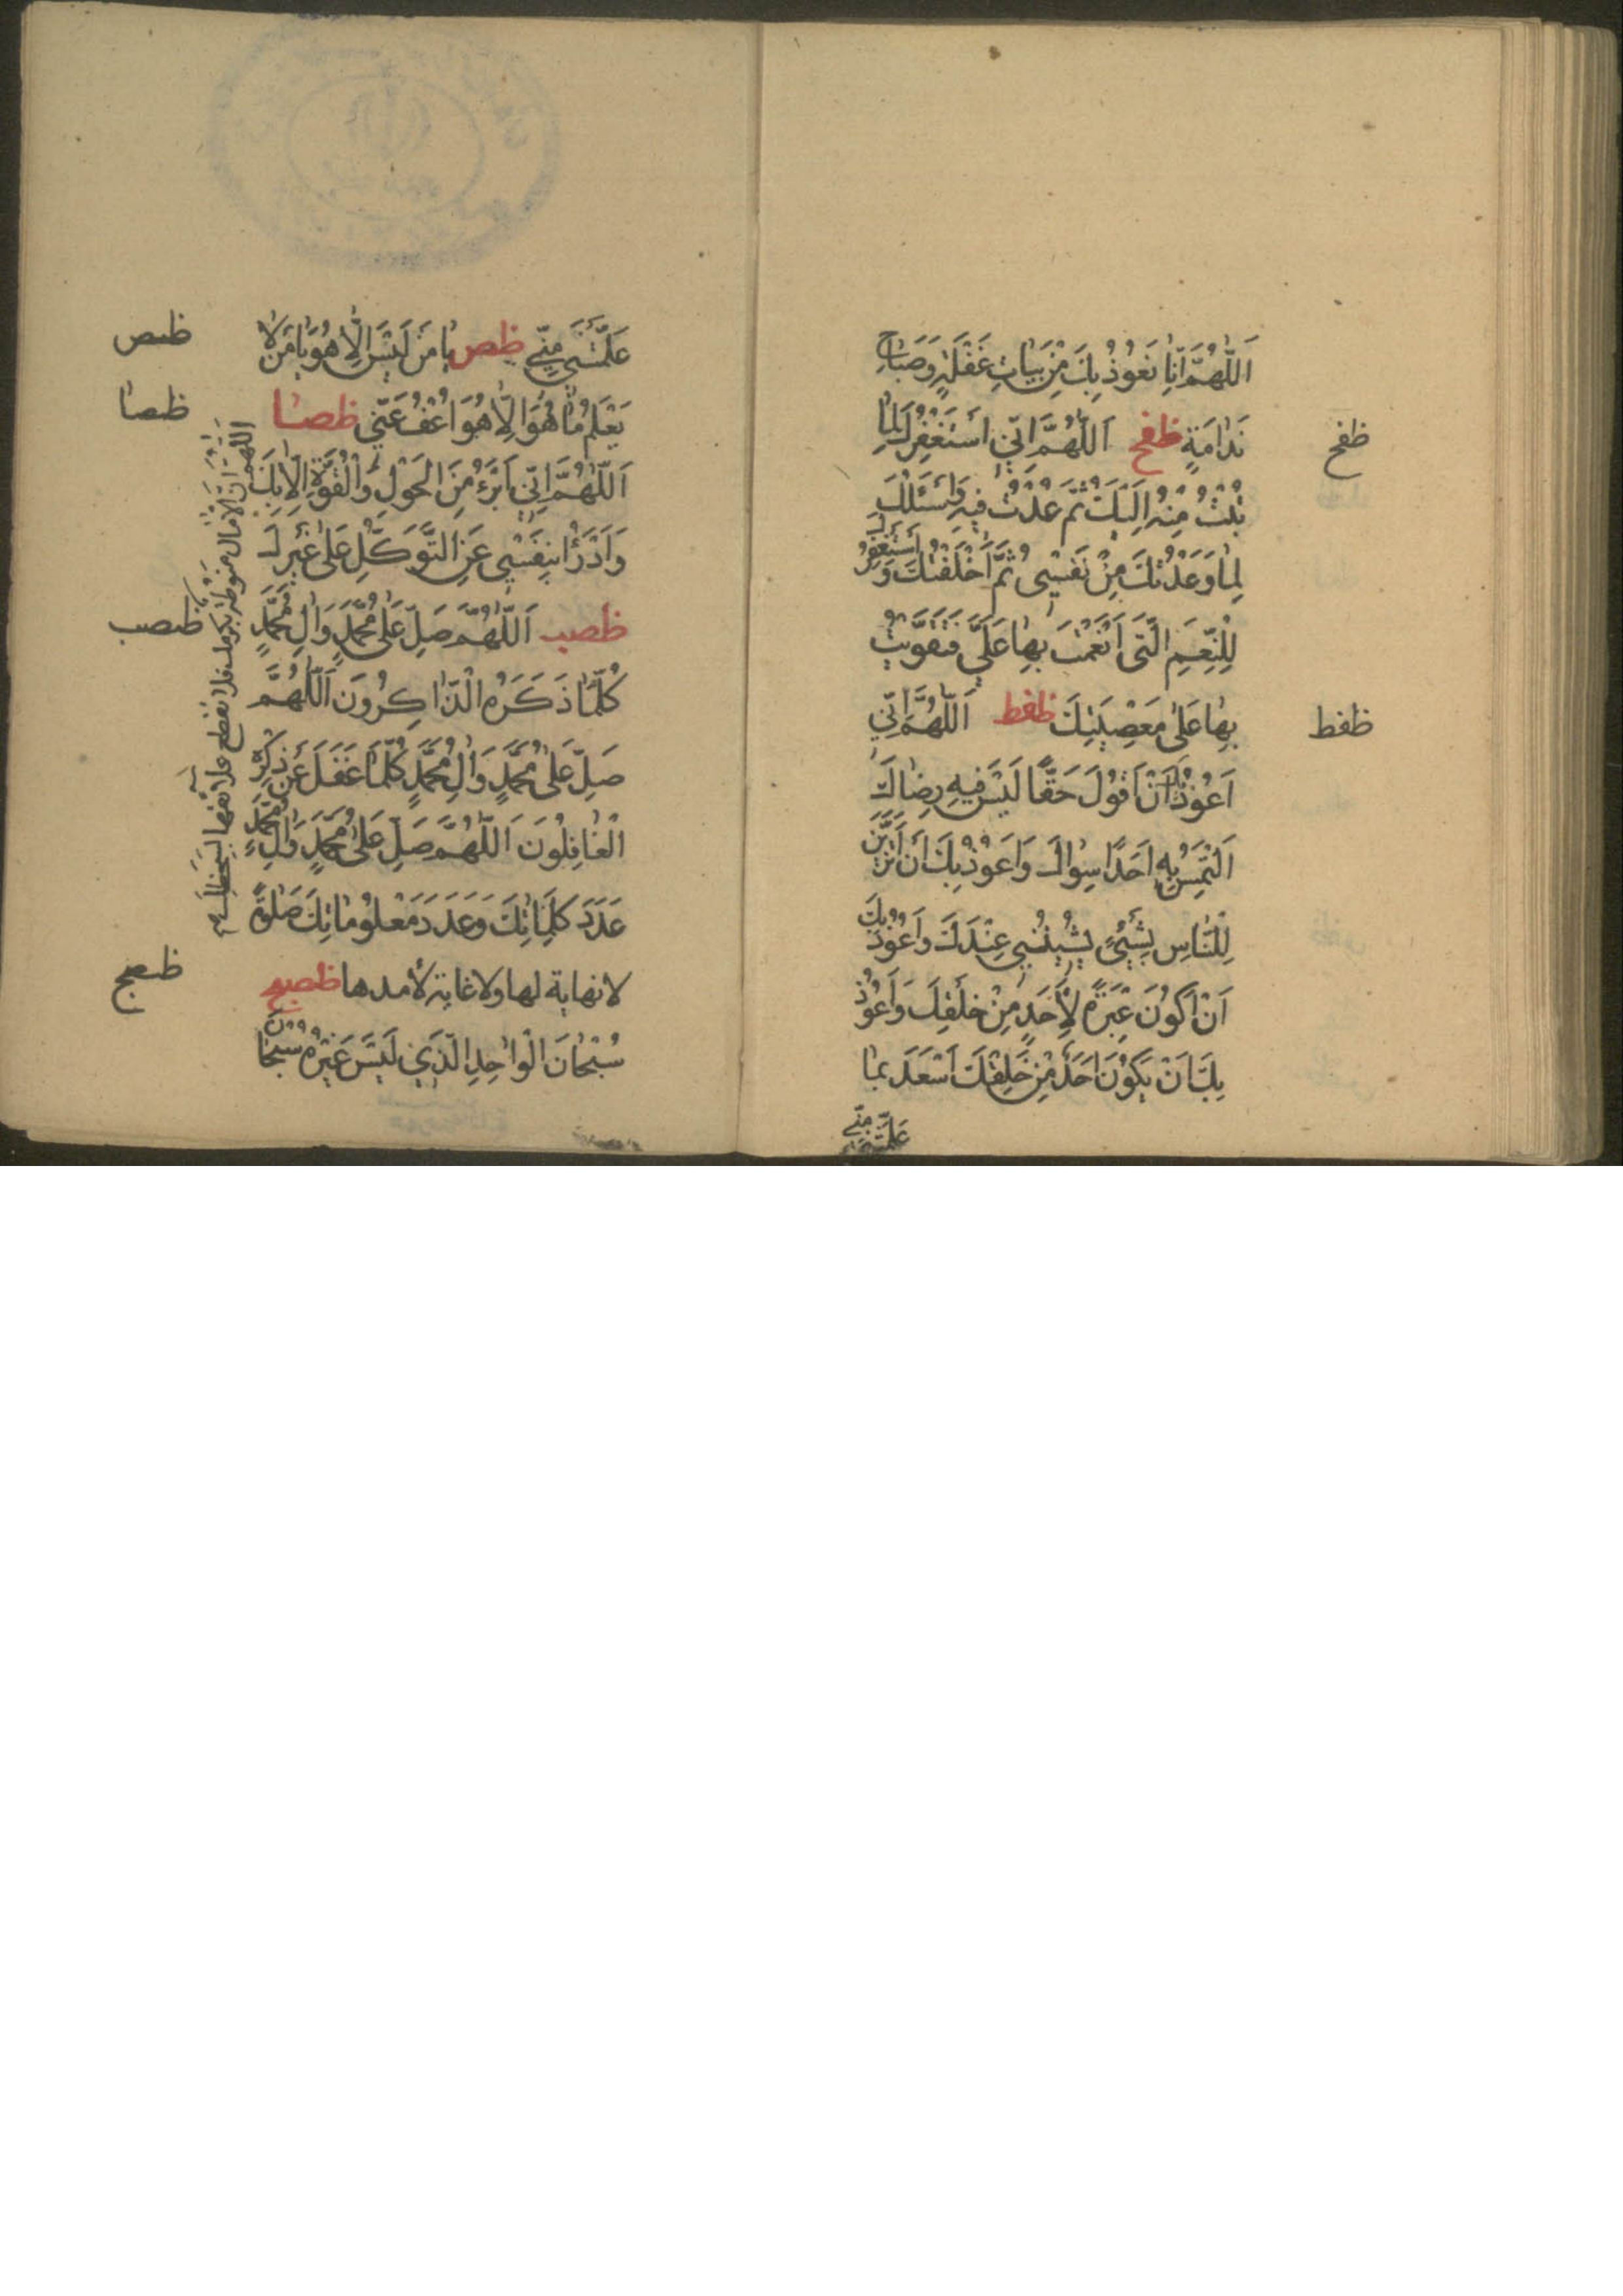 اَللّٰهُمَّ اِنّٰا نَعُوذُ بِكَ مِنْ بَيٰاتِ غَفْلَةٍ وَصَبٰاحِ
نَدٰامَةٍ ظفح اَللّٰهُمَّ اِنّي اَسْتَغْفِرُكَ لِمٰا
ظفح
تُبْتُ مِنْهُ اِلَيْكَ ثُمَّ عُدْتُ فيهِ وَاَسْتَغْفِرُكَ
لِمٰا وَعَدْتُكَ مِنْ نَفْسِي ثُمَّ اَخْلَفْتُكَ وَ اَسْتَغْفِرُكَ
لِلنِّعَمِ الَّتي اَنْعَمْتَ بِهٰا عَلَيَّ فَتَقَوَّيْتُ
بِهٰا عَلىٰ مَعْصِيَتِكَ ظفط اَللّٰهُمَّ اِنّي
ظفط
اَعُوذُ بِكَ اَنْ اَقُولَ حَقًّا لَيْسَ فيهِ رِضٰاكَ
اَلْتَمِسُ بِهِ اَحَدًا سِوٰاكَ وَاَعُوذُ بِكَ اَنْ اَتَزَيَّنَ
لِلنّٰاسِ بِشَيْءٍ يَشينُني عِنْدَكَ وَاَعُوذُ بِكَ
اَنْ اَكُونَ عِبْرَةً لِاَحَدٍ مِنْ خَلْقِكَ وَاَعُوذُ
بِكَ اَنْ يَكُونَ اَحَدٌ مِنْ خَلْقِكَ اَسْعَدَ بِمٰا
عَلَّمْتَني مِنّي
عَلَّمْتَني مِنّي ظص يٰا مَنْ لَيْسَ اِلّٰا هُوَ يٰا مَنْ لٰا
ظص
يَعْلَمُ مٰا هُوَ اِلّٰا هُوَ اعْفُ عَنّي ظصا
ظصا
اَللّٰهُمَّ اِنّي اَبْرَءُ مِنَ الْحَوْلِ وَالْقُوَّةِ اِلّٰا بِكَ
وَاَدْرَأُ بِنَفْسي عَنِ التَّوَكُّلِ عَلىٰ غَيْرِكَ
ظصب اَللّٰهُمَّ صَلِّ عَلىٰ مُحَمَّدٍ وَاٰلِ مُحَمَّدٍ
ظصب
كُلَّمٰا ذَكَرَهُ الذّٰاكِرُونَ اَللّٰهُمَّ
صَلِّ عَلىٰ مُحَمَّدٍ وَاٰلِ مُحَمَّدٍ كُلَّمٰا غَفَلَ عَنْ ذِكْرِهِ
الْغٰافِلُونَ اَللّٰهُمَّ صَلِّ عَلىٰ مُحَمَّدٍ وَاٰلِ مُحَمَّدٍ
عَدَدَ كَلِمٰاتِكَ وَعَدَدَ مَعْلُومٰاتِكَ صَلٰوةً
لا نهاية لها ولا غاية لأمدها ظصج
ظصج
سُبْحٰانَ الْوٰاحِدِ الَّذي لَيْسَ غَيْرُهُ سُبْحٰانَ
اللهم ان الامال منوطة بكرمك فلا تقطع علائقها بسخطك